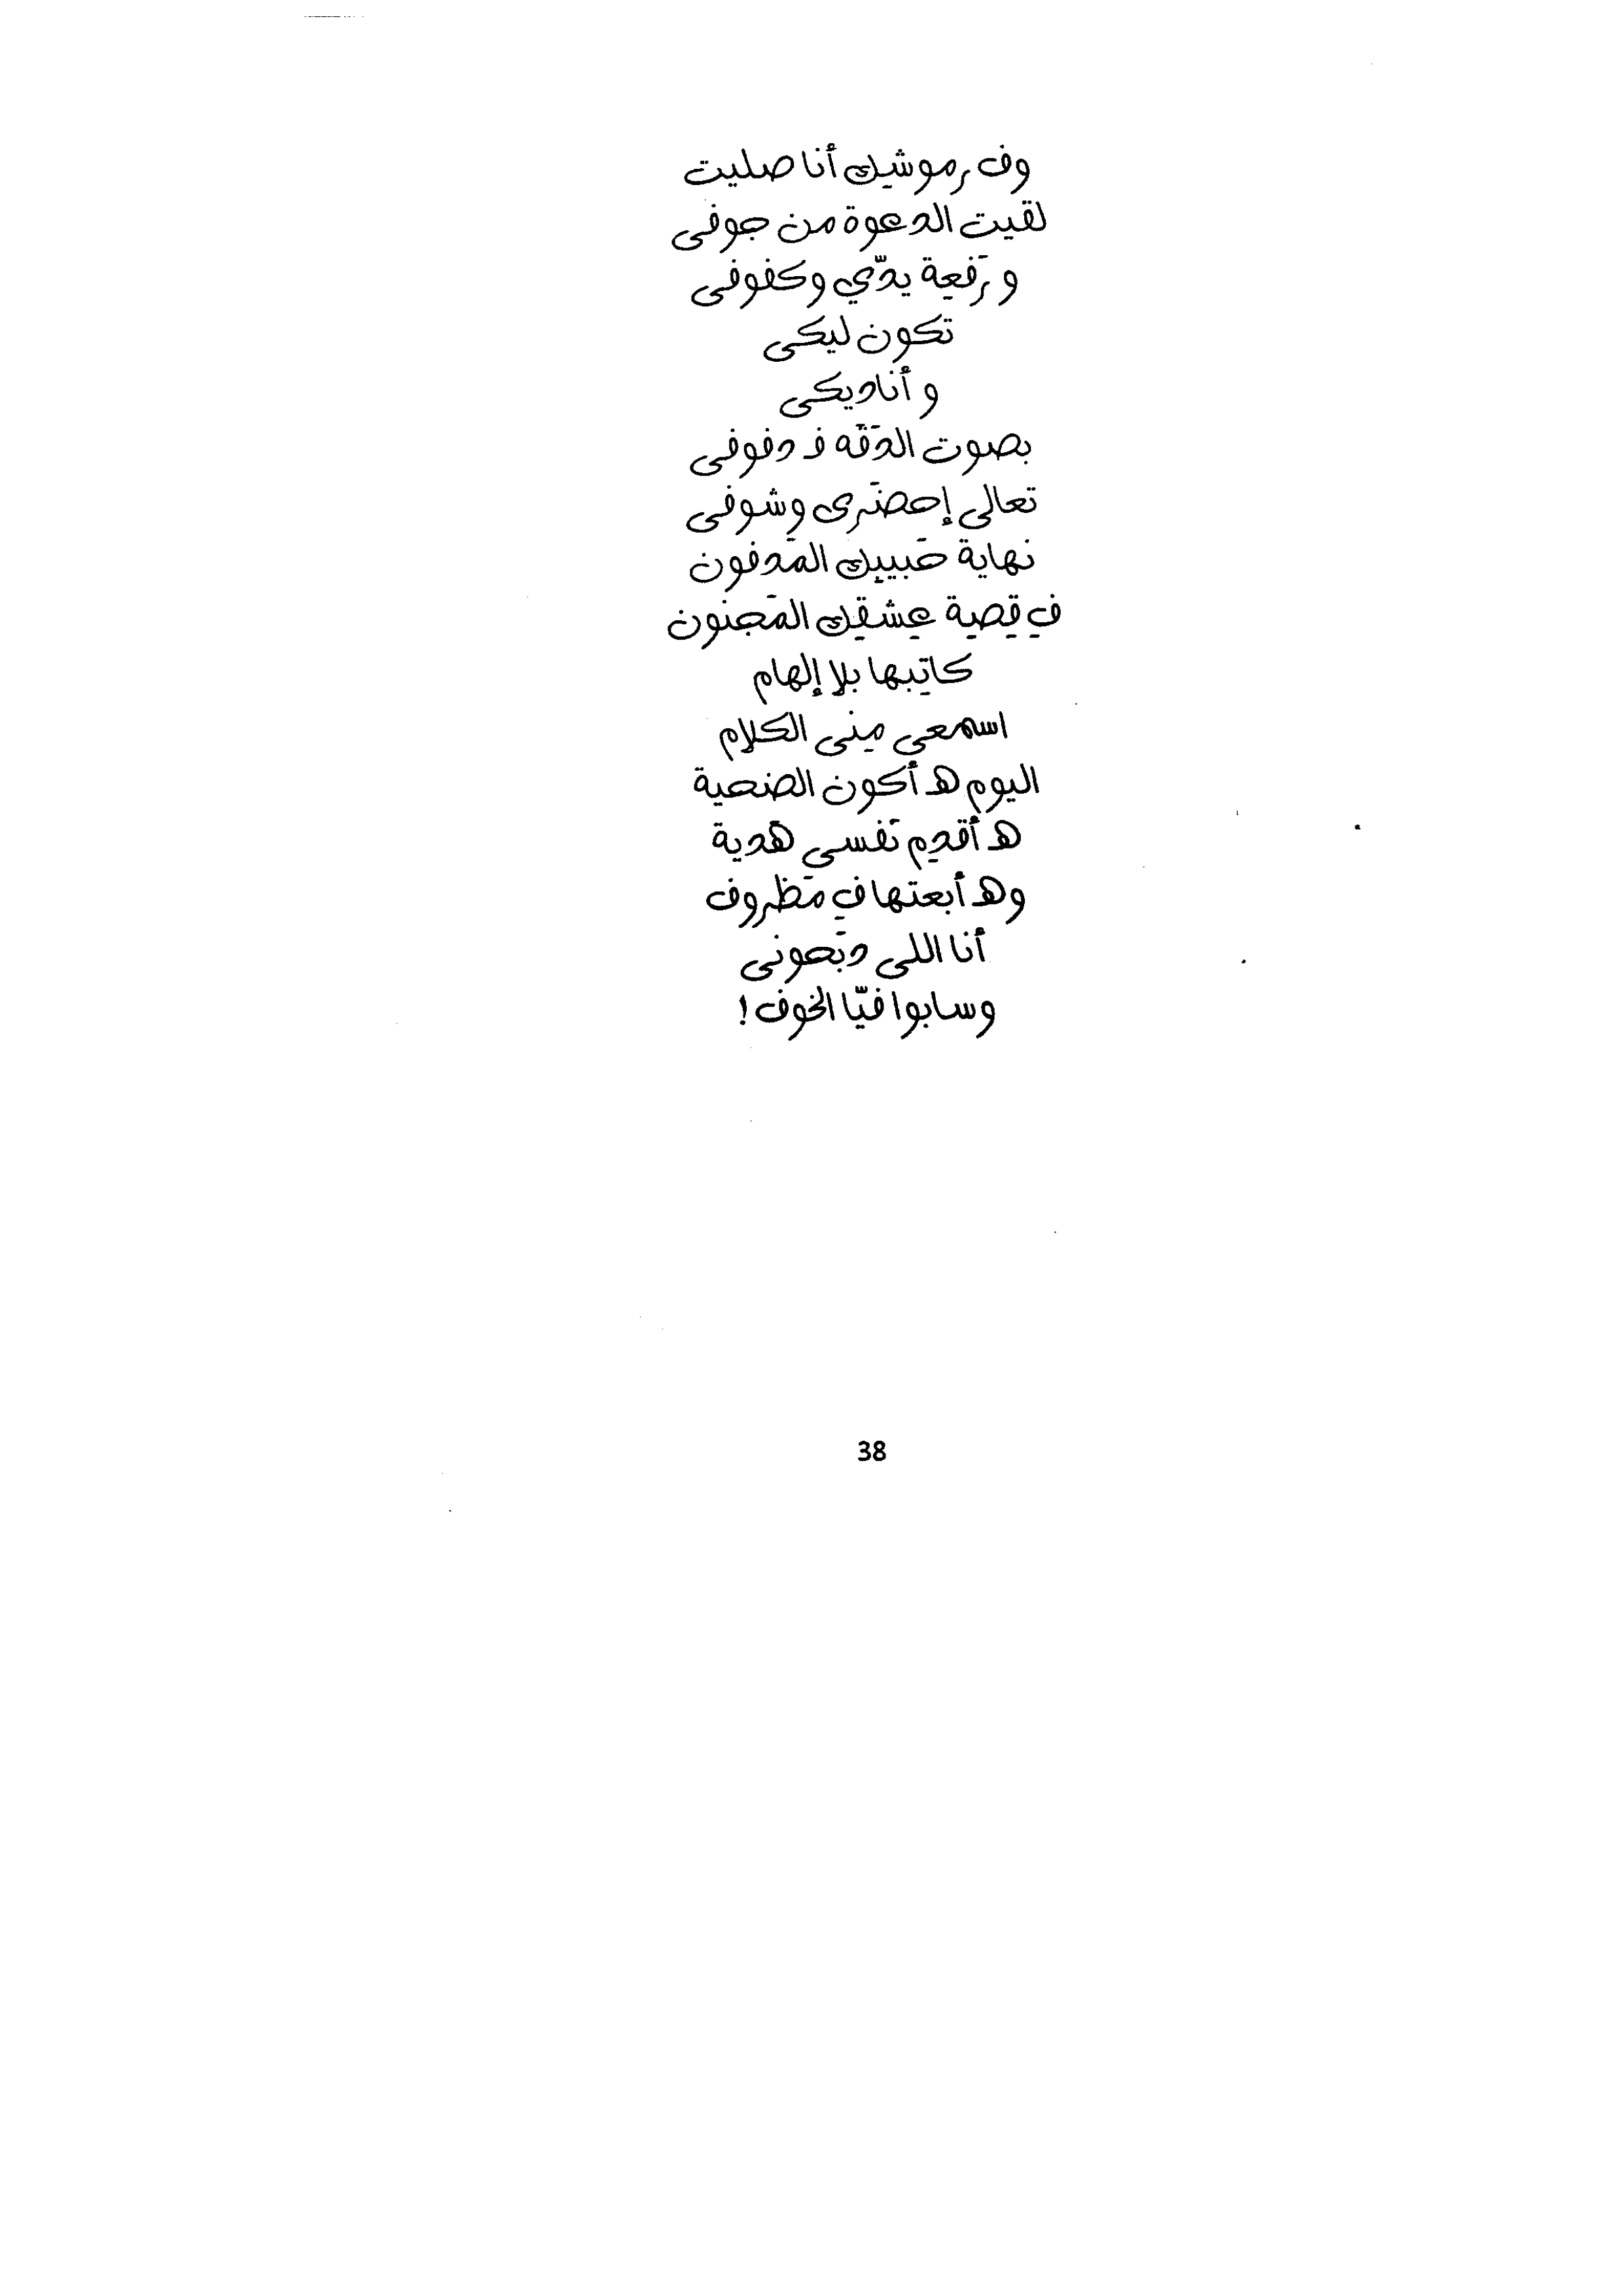 وف رموشِك أنا صليت
لقيت الدعوة من جوفى
و رَفعِة يدّي وكفوفى
تكون ليكى
و أناديكى
بصوت الدَقّه فـ دفوفى
تعالى إحضَرى وشوفى
نهاية حَبيبِك المَدفون
فِي قِصِة عِشقِك المَجنون
كاتِبها بلا إلهام
اسمعى مِنى الكلام
اليوم هـ أكون الضحية
هـ أقدِم نَفسى هَدية
وهـ أبعتها فِي مَظروف
أنا اللى دبَحونى
وسابوا فيّا الخوف!
38